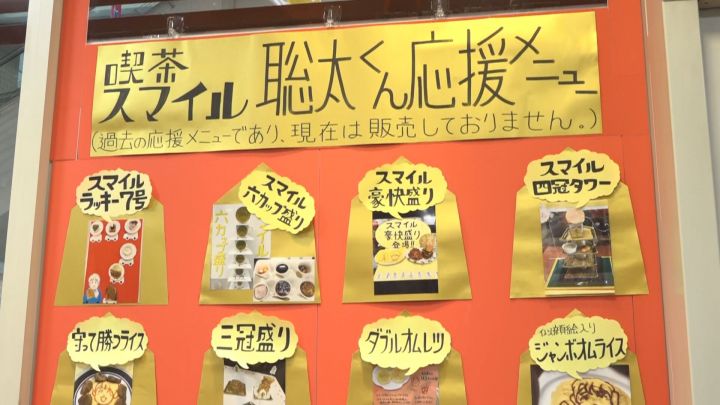 喫茶スマイル 聡太くん応援メニュー
(過去の応援メニューであり、現在は販売しておりません。)
スマイル
ラッキー7号
スマイル
六カップ盛り
六カップ盛り
スマイル
豪快盛り
スマイル
豪快盛り
登場!!
スマイル
四冠タワー
守って勝つライス
三冠盛り
ダブルオムレツ
似顔絵入り
ジャンボオムライス